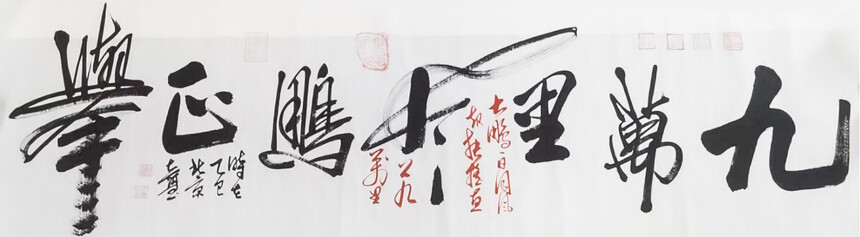 九萬里大鵬正舉
大鵬一日同風
起扶搖直
上九
萬里
時在
乙巳
北京